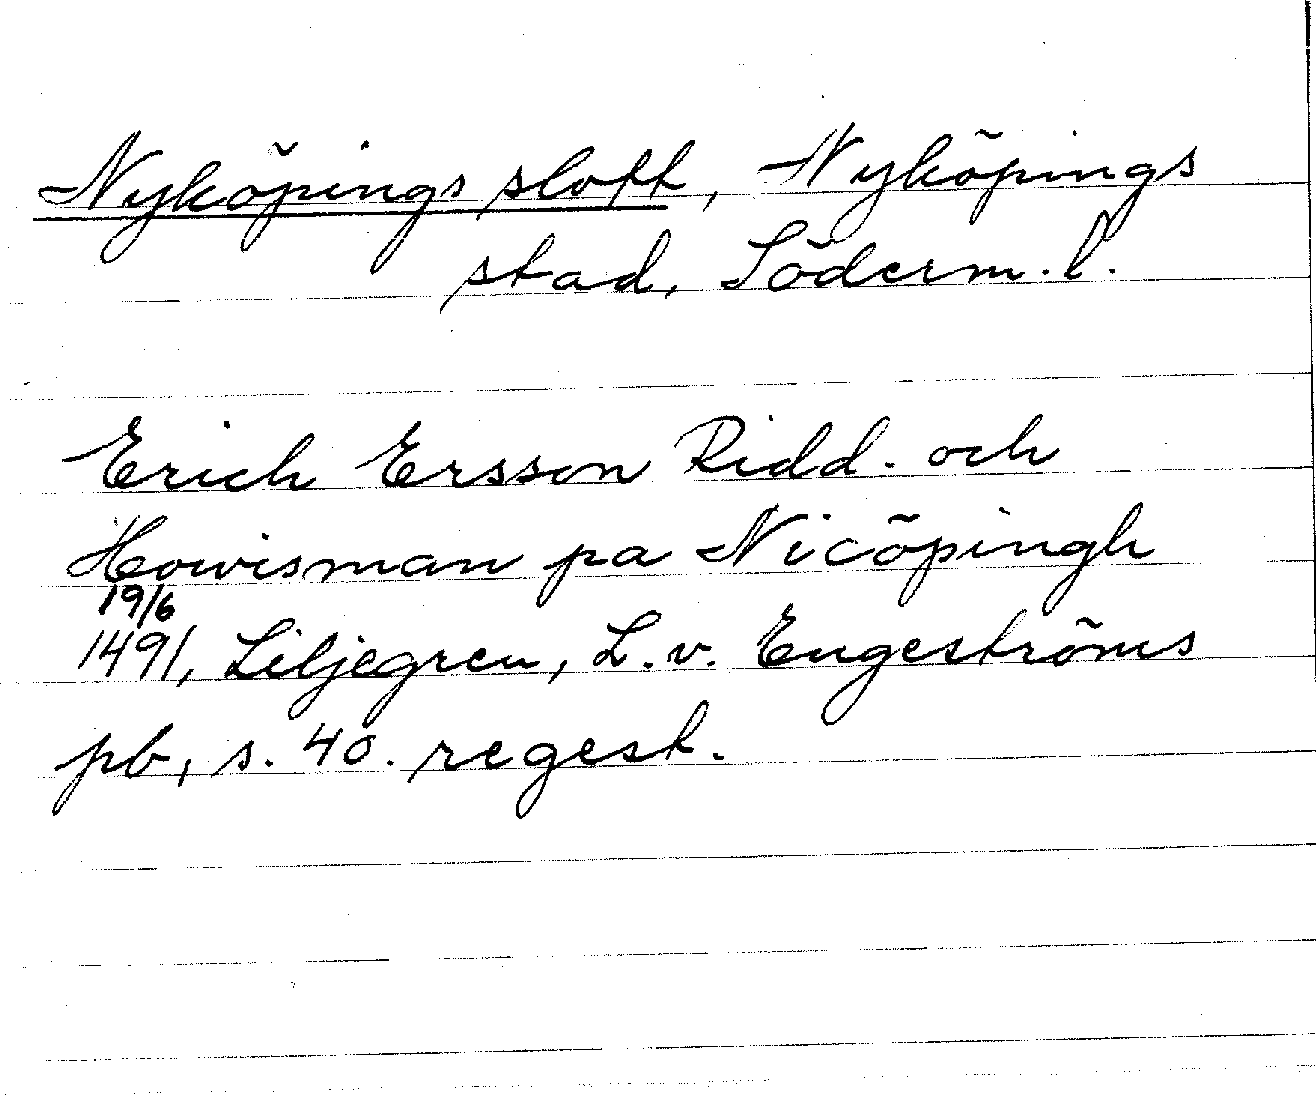 Nyköpings slott, Nyköpings
stad, Söderm.l.
Erich Ersson Ridd. och
Howisman pa Nicöpingh
19/6
1491, Liljegren, L.v. Engeströms
pb, s. 40. regest.